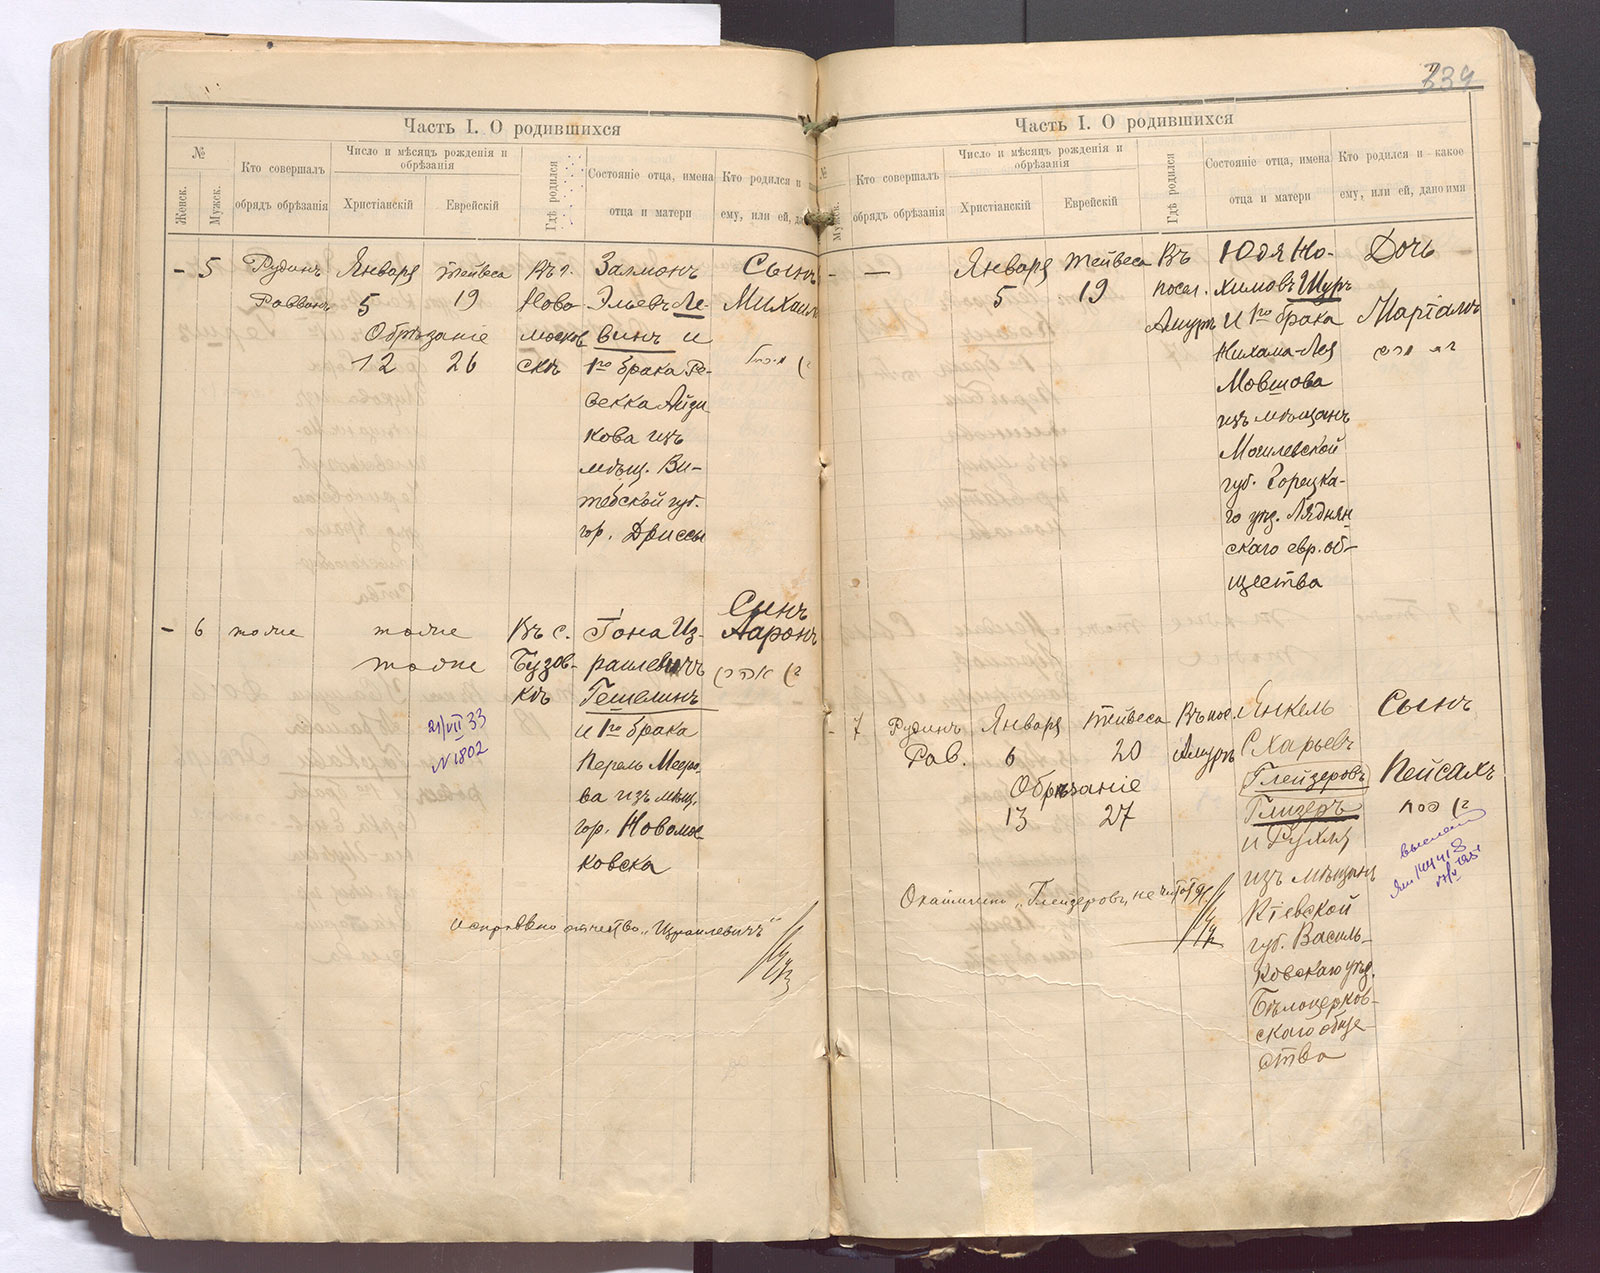 239
Часть I. О родившихся
№
Женск.
Мужск.
Кто совершалъ
обрядъ обрѣзанія
Число и мѣсяцъ рожденія и
обрѣзанія
Христіанскій
Еврейскій
Гдѣ родился
Состояніе отца, имена
отца и матери
Кто родился и
ему, или ей, да
– 5
Рудинъ
Раввинъ
Января
5
Обрѣзаніе
12
Тейвеса
19
26
Въ г.
Ново-
москов
скѣ
Залмонъ
Эльевъ Ле-
винъ и
1го брака Ре-
векка Айзи
кова изъ
мѣщ. Ви-
тебской губ.
гор. Дриссы
Сынъ
Михаилъ
– 6
тоже
тоже
тоже
Въ с.
Бузов-
кѣ
Іона Из-
раилевичъ
Гешелинъ
и 1го брака
Перль Мееро
ва изъ мѣщ.
гор. Новомос
ковска
Сынъ
Ааронъ
בן אהרן
21/VII 33
N 1802
исправлено отчество „Израилевичъ"
Часть I. О родившихся
№
Мужск.
Кто совершалъ
обрядъ обрѣзанія
Число и мѣсяцъ рожденія и
обрѣзанія
Христіанскій
Еврейскій
Гдѣ родился
Состояніе отца, имена
отца и матери
Кто родился и какое
ему, или ей, дано имя
– —
Января
5
Тейвеса
19
Въ
посел.
Амуръ
Юдя Но-
химовъ Шуръ
и 1го брака
Нихама-Лея
Мовшова
изъ мѣщанъ
Могилевской
губ. Горецка-
го уѣзд. Ляднян
скаго евр. об-
щества
Дочь
Маріамъ
בת מרים
– 7
Рудинъ
Рав.
Января
6
Обрѣзаніе
13
Тейвеса
20
27
Въ пос.
Амуръ
Янкель
Схарьевъ
Глейзеровъ
Глизеръ
и Рухля
изъ мѣщанъ
Кіевской
губ. Василь-
ковскаго уѣзд.
Бѣлоцерков-
скаго обще-
ства
Сынъ
Пейсахъ
בן פסח
„Глейзеровъ" не читать